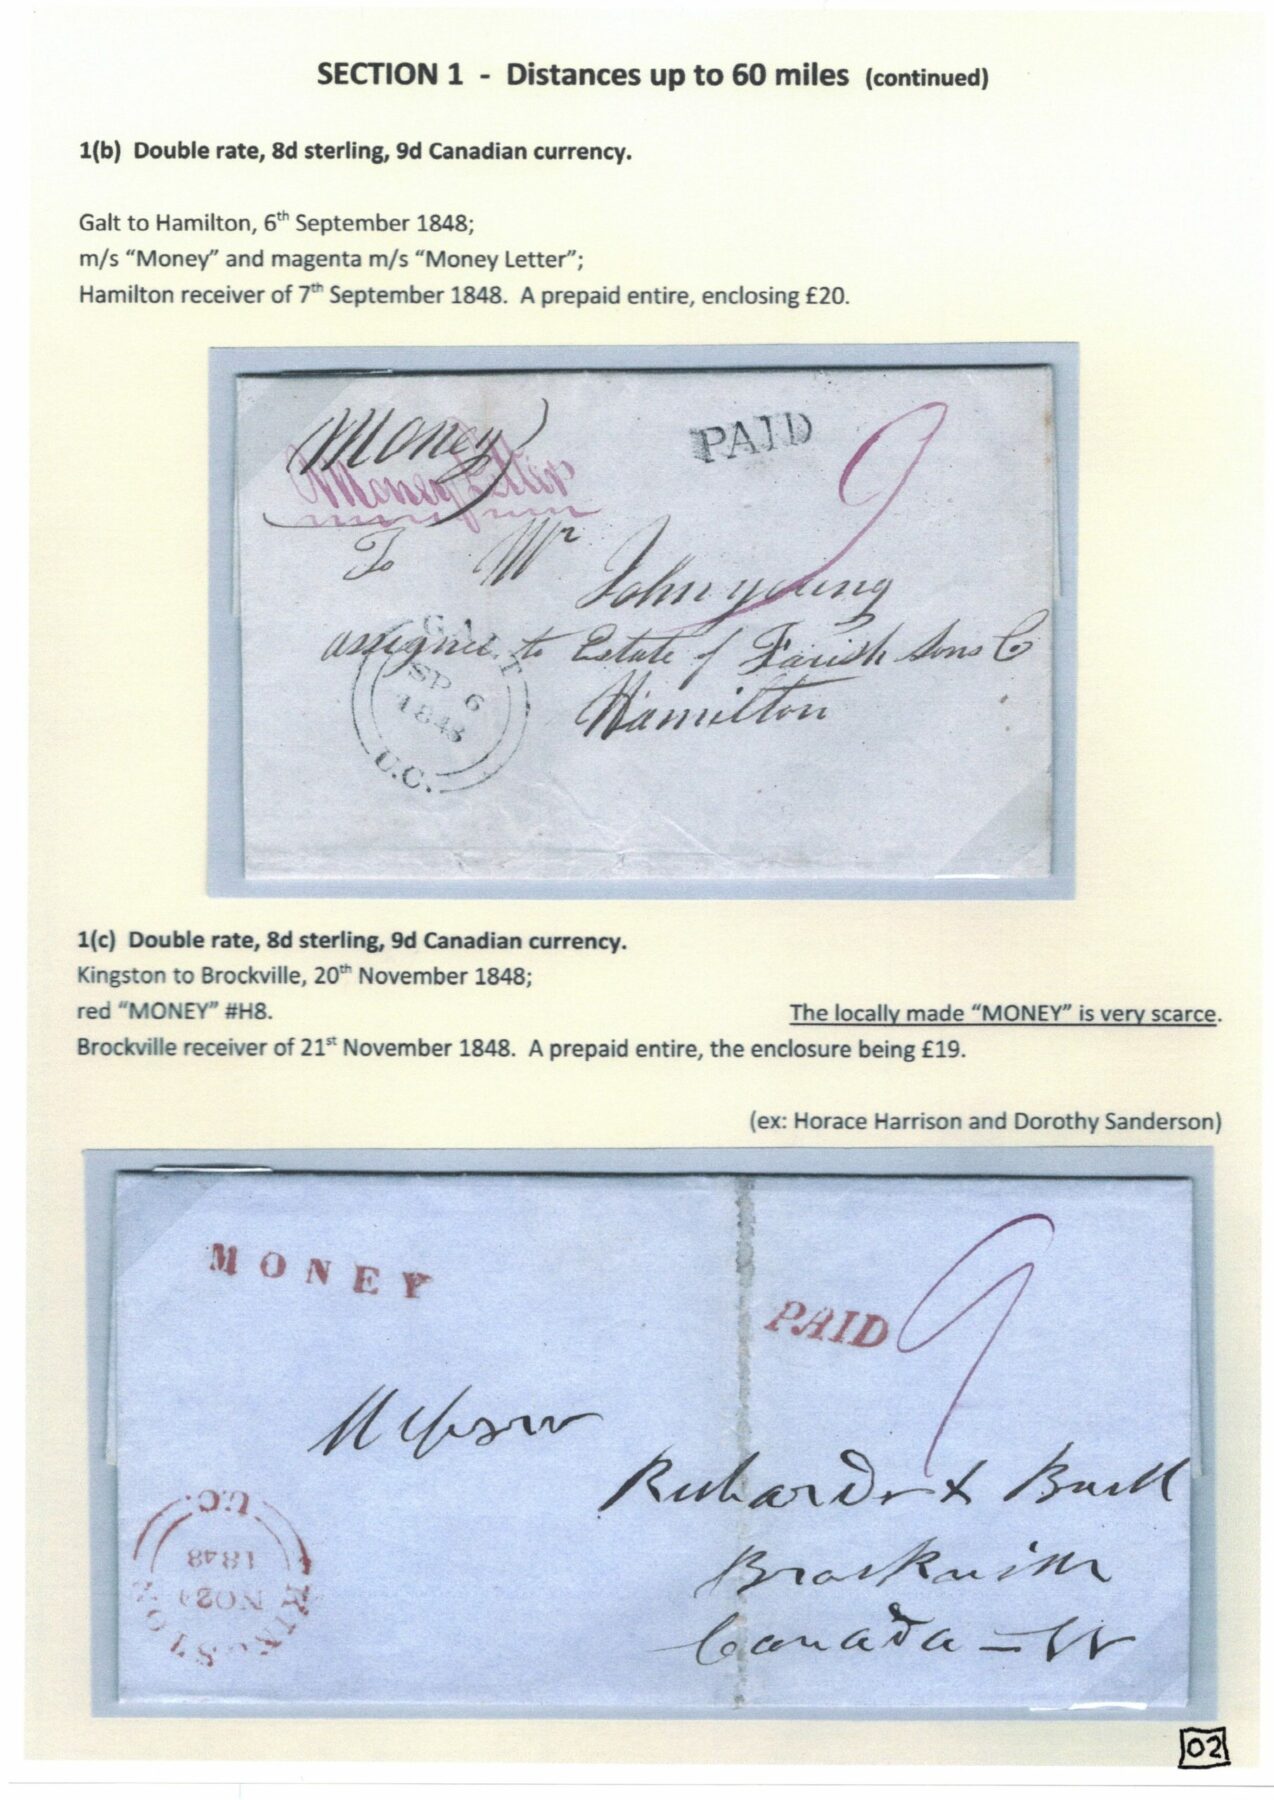 SECTION 1 - Distances up to 60 miles (continued)
1(b) Double rate, 8d sterling, 9d Canadian currency.
Galt to Hamilton, 6th September 1848;
m/s “Money” and magenta m/s “Money Letter”;
Hamilton receiver of 7th September 1848. A prepaid entire, enclosing £20.
Money
Money Letter
PAID 9
To Mr
John Young
assignee to Estate of Farish Sons Co
Hamilton
GALT
SP 6
1848
U.C.
1(c) Double rate, 8d sterling, 9d Canadian currency.
Kingston to Brockville, 20th November 1848;
red “MONEY” #H8. The locally made “MONEY” is very scarce.
Brockville receiver of 21st November 1848. A prepaid entire, the enclosure being £19.
(ex: Horace Harrison and Dorothy Sanderson)
MONEY
PAID 9
Messrs
Richards & Buell
Brockville
Canada - W
KINGSTON
1848
U.C.
02